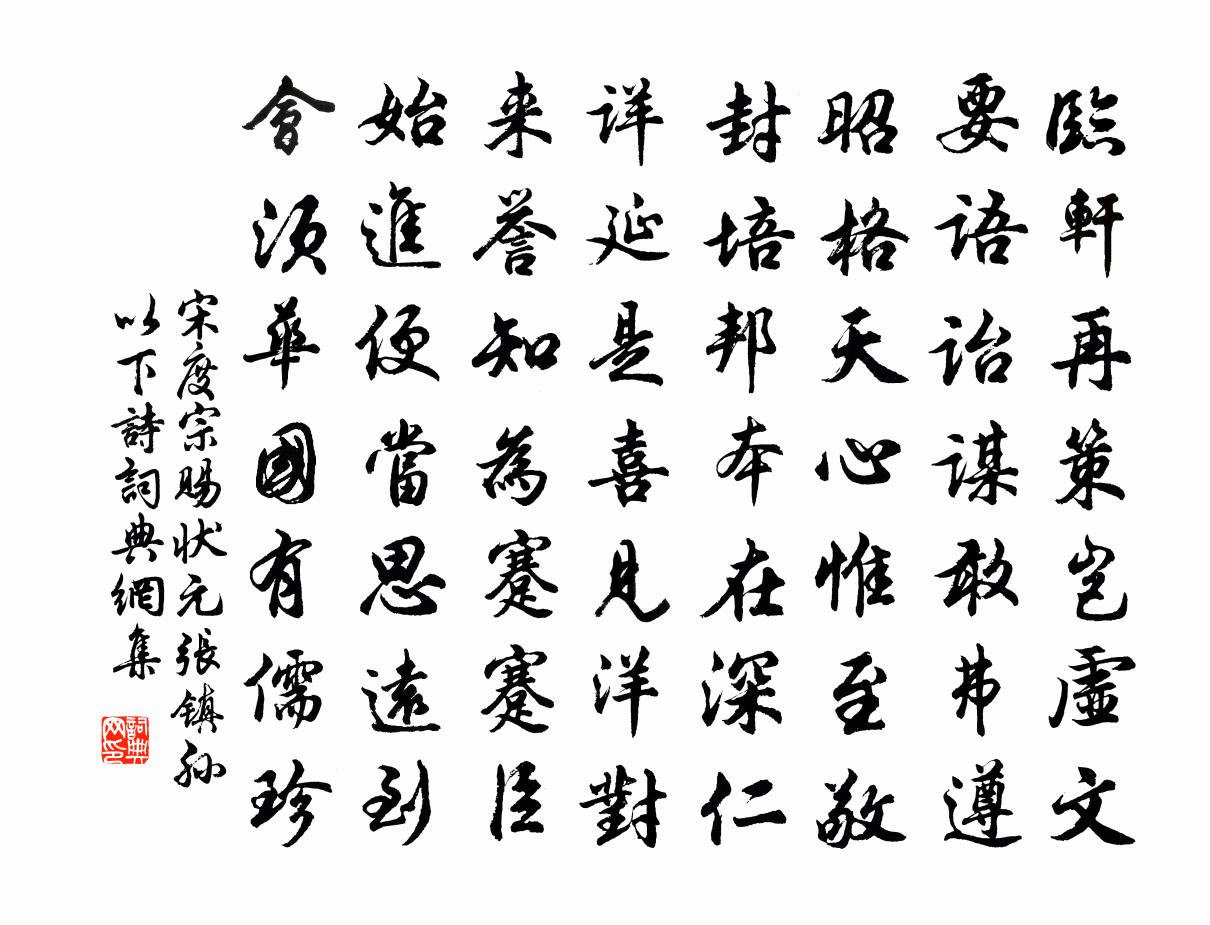 臨軒再策豈虛文
要語詒謀敢弗遵
昭格天心惟至敬
封培邦本在深仁
詳延是喜見洋對
来譽知為蹇蹇臣
始進便當思遠到
會須華國有儒珍
宋度宗賜狀元張鎮孙
以下詩詞典網集
詞典
网印